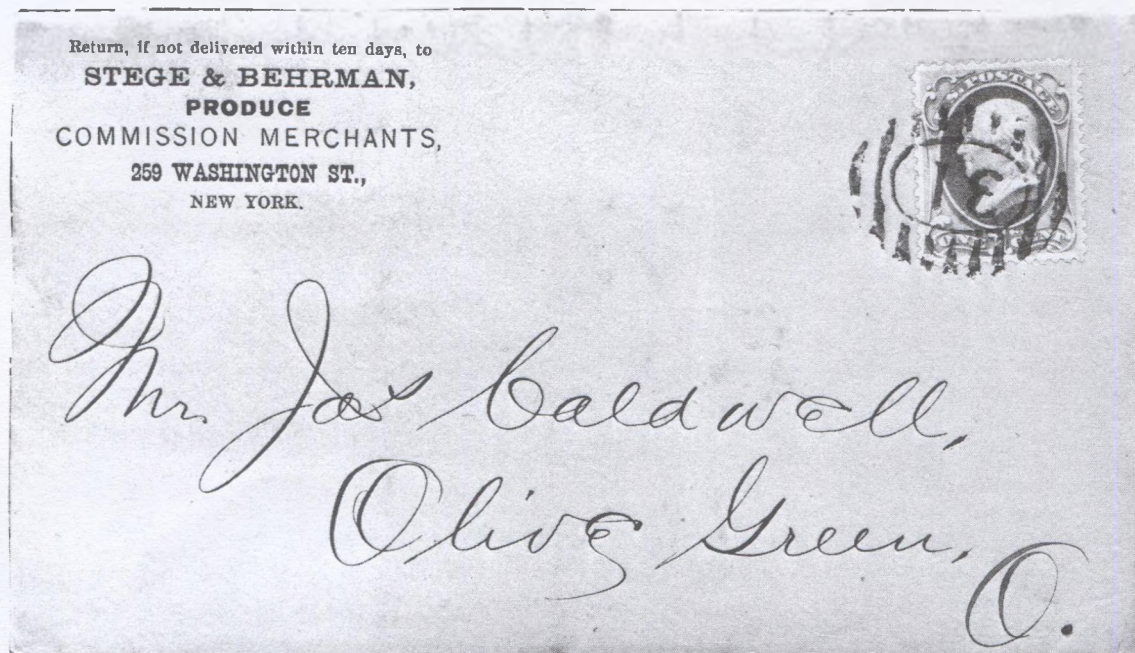 Return, if not delivered within ten days, to
STEGE & BEHRMAN,
PRODUCE
COMMISSION MERCHANTS,
259 WASHINGTON ST.,
NEW YORK.
U.S. POSTAGE
Mr. Jas Caldwell,
Olive Green,
O.